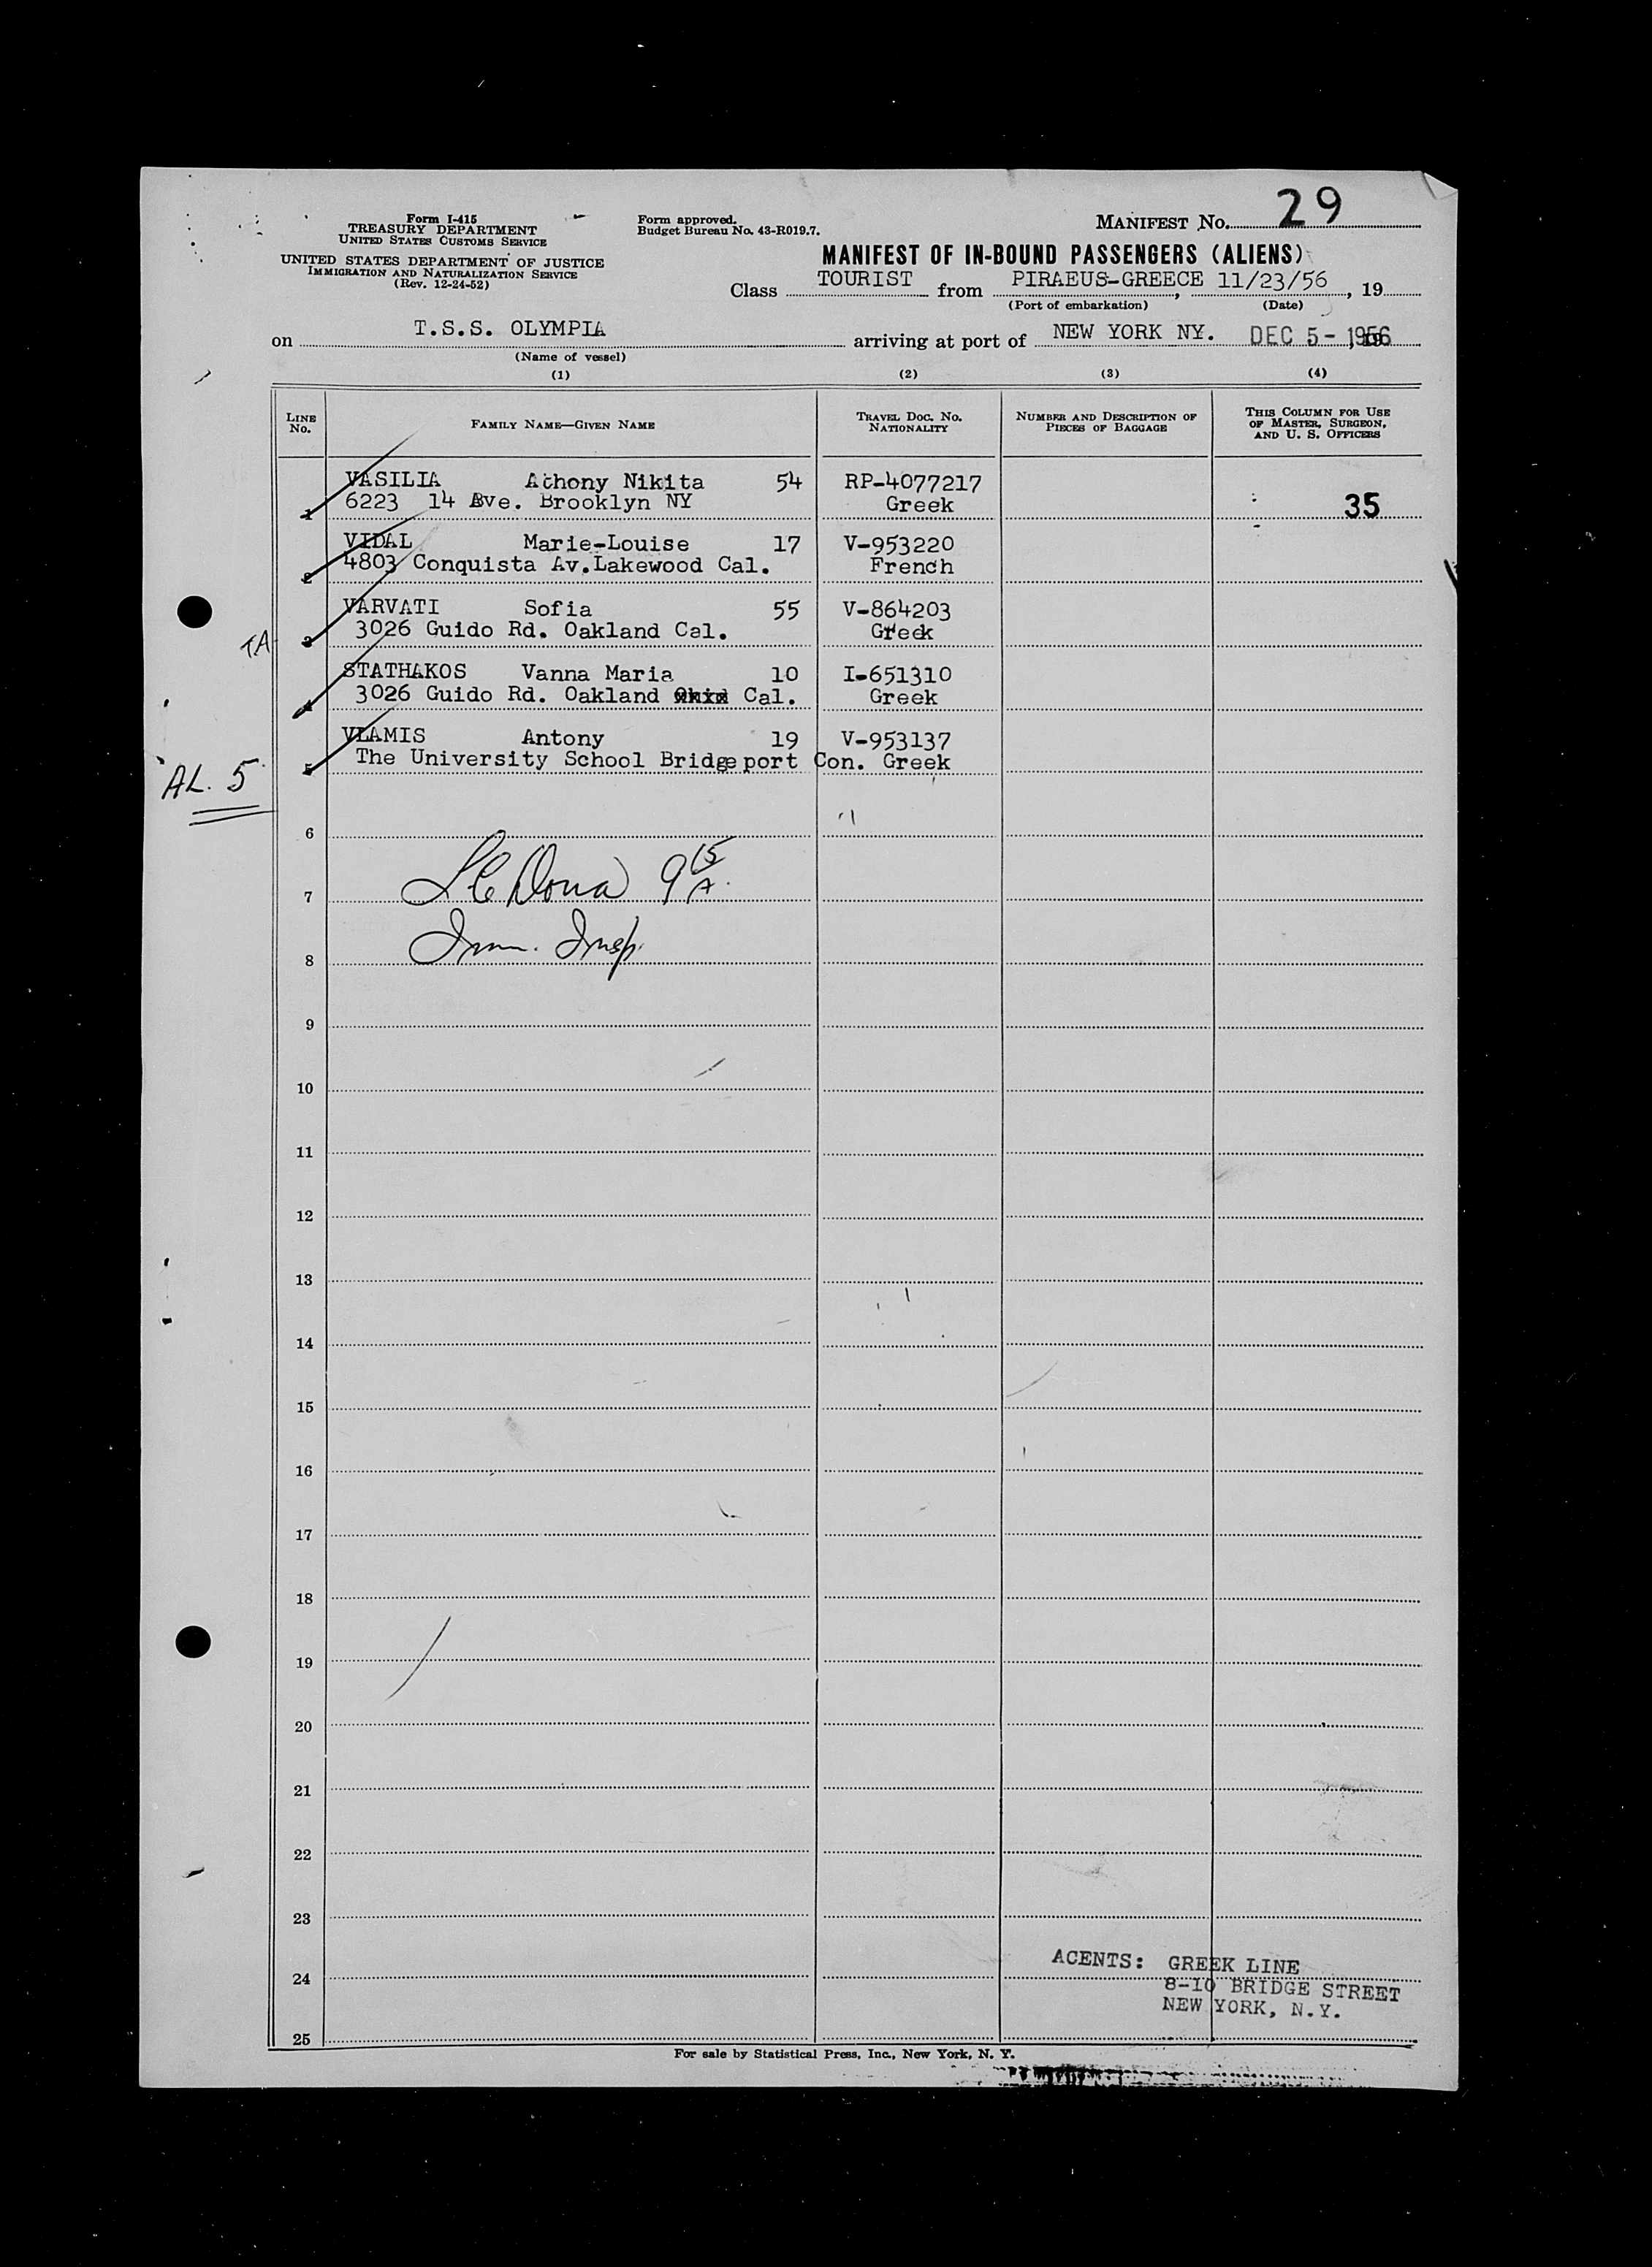 Form I-415
TREASURY DEPARTMENT
UNITED STATES CUSTOMS SERVICE
UNITED STATES DEPARTMENT OF JUSTICE
IMMIGRATION AND NATURALIZATION SERVICE
(Rev. 12-24-52)
Form approved.
Budget Bureau No. 43-R019.7.
MANIFEST No. 29
MANIFEST OF IN-BOUND PASSENGERS (ALIENS)
Class TOURIST from PIRAEUS-GREECE, 11/23/56, 19
(Port of embarkation) (Date)
on T.S.S. OLYMPIA arriving at port of NEW YORK NY. DEC 5 - 1956
(Name of vessel)
(1) (2) (3) (4)
LINE No. FAMILY NAME—GIVEN NAME TRAVEL DOC. NO. NATIONALITY NUMBER AND DESCRIPTION OF PIECES OF BAGGAGE THIS COLUMN FOR USE OF MASTER, SURGEON, AND U. S. OFFICERS
VASILIA Athony Nikita 54 RP-4077217
1 6223 14 Ave. Brooklyn NY Greek 35
VIDAL Marie-Louise 17 V-953220
2 4803 Conquista Av. Lakewood Cal. French
VARVATI Sofia 55 V-864203
TA 3 3026 Guido Rd. Oakland Cal. Greek
STATHAKOS Vanna Maria 10 I-651310
4 3026 Guido Rd. Oakland Cal. Greek
VLAMIS Antony 19 V-953137
5 The University School Bridgeport Con. Greek
AL. 5
6
7 9 15 A.
8 Imm. Insp.
9
10
11
12
13
14
15
16
17
18
19
20
21
22
23
AGENTS: GREEK LINE
24 8-10 BRIDGE STREET
NEW YORK, N.Y.
25
For sale by Statistical Press, Inc., New York, N. Y.